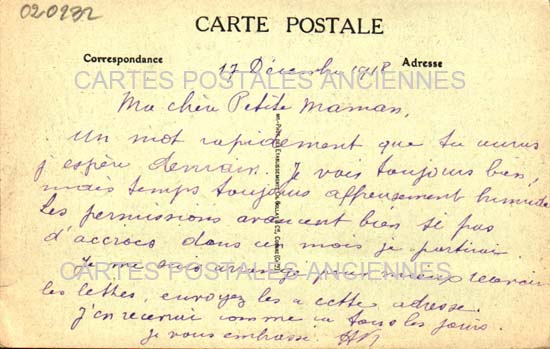 020232
CARTE POSTALE
Correspondance
Adresse
17 Décembre 1918
CARTES POSTALES ANCIENNES
Ma chère Petite Maman,
Un mot rapidement que tu auras
j'espère demain. Je vais toujours bien,
mais temps toujours affreusement humide
Les permissions avancent bien si pas
d'accrocs dans un mois je partirai
Je me suis arrangé pour mieux recevoir
CARTES POSTALES ANCIENNES
les lettres, envoyez les a cette adresse.
J'en recevrai comme ça tous les jours.
je vous embrasse.